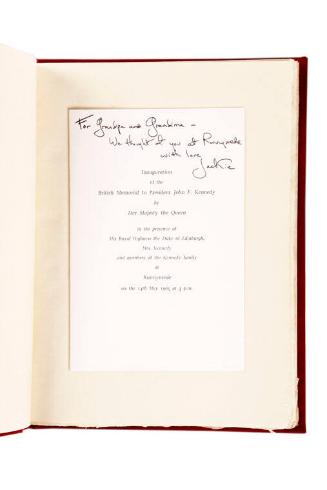 For Grandpa and Grandma –
We thought of you at Runnymede
with love
Jackie
Inauguration
of the
British Memorial to President John F. Kennedy
by
Her Majesty the Queen
in the presence of
His Royal Highness the Duke of Edinburgh,
Mrs. Kennedy
and members of the Kennedy family
at
Runnymede
on the 14th May 1965 at 3 p.m.